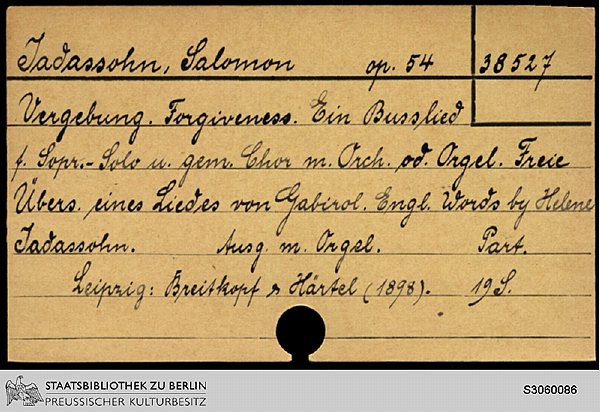 Jadassohn, Salomon op. 54 38527
Vergebung. Forgiveness. Ein Busslied
f. Sopr.-Solo u. gem. Chor m. Orch. od. Orgel. Freie
Übers. eines Liedes von Gabirol. Engl. Words by Helene
Jadassohn. Ausg. m. Orgel. Part.
Leipzig: Breitkopf & Härtel (1898). 19 S.
STAATSBIBLIOTHEK ZU BERLIN
PREUSSISCHER KULTURBESITZ
S3060086